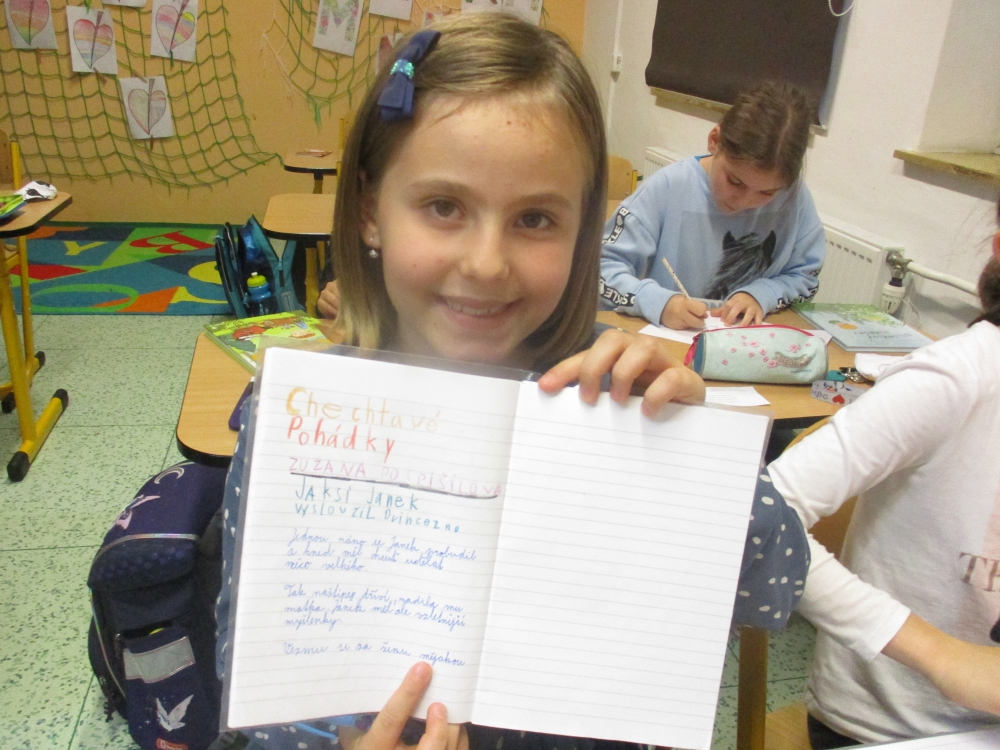 Chechtavé
Pohádky
ZUZANA POSPÍŠILOVÁ
Jak si Janek
vysloužil princeznu
Jednou ráno se Janek probudil
a hned měl chuť udělat
něco velkého.
Tak naštípej dříví, radila mu
matka. Janek měl ale vznešenější
myšlenky.
Vezmu si za ženu nějakou